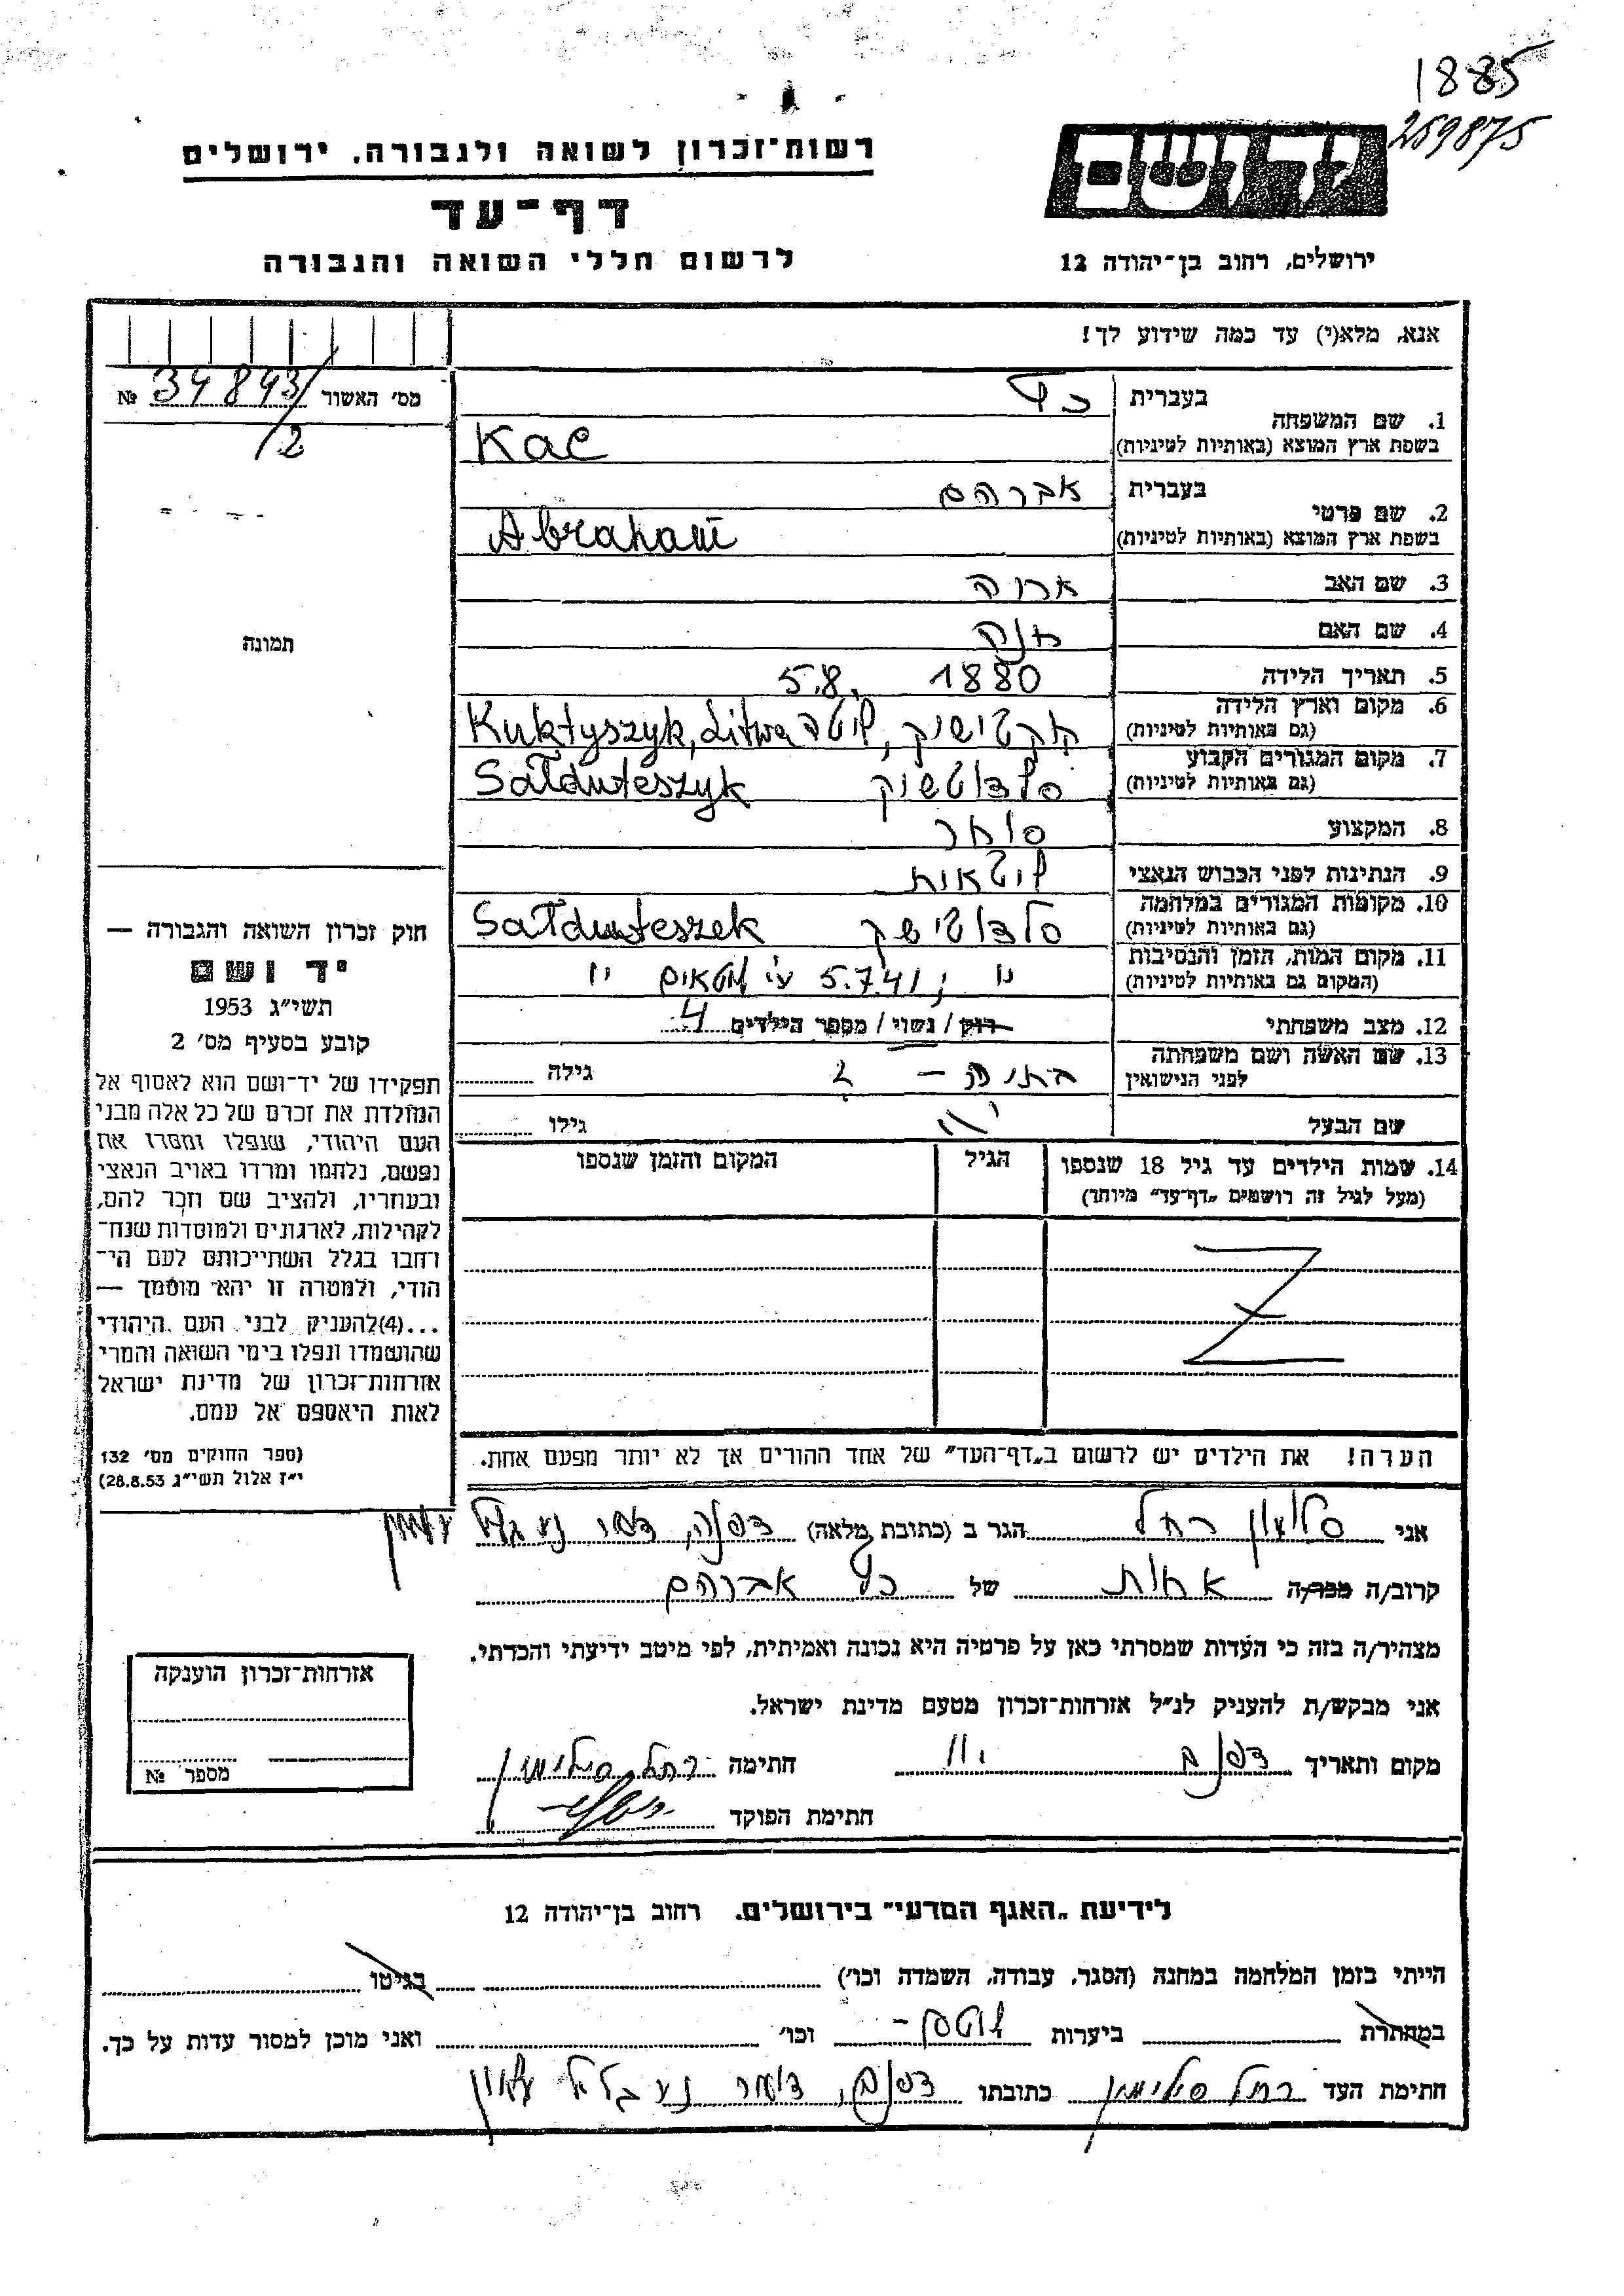 1885
259875
יד ושם
רשות־זכרון לשואה ולגבורה. ירושלים
דף־עד
לרשום חללי השואה והגבורה
ירושלים, רחוב בן־יהודה 12
אנא, מלא(י) עד כמה שידוע לך!
מס׳ האשור 34843/2 №
1. שם המשפחה
בעברית כץ
בשפת ארץ המוצא (באותיות לטיניות) Kac
2. שם פרטי
בעברית אברהם
בשפת ארץ המוצא (באותיות לטיניות) Abraham
3. שם האב
4. שם האם
5. תאריך הלידה 1880 5.8.
6. מקום וארץ הלידה
(גם באותיות לטיניות) ליטה Kuktyszyk, Litwa
7. מקום המגורים הקבוע
(גם באותיות לטיניות) סלדוטשוק Sałduteszyk
8. המקצוע סוחר
9. הנתינות לפני הכבוש הנאצי ליטאית
10. מקומות המגורים במלחמה
(גם באותיות לטיניות) סלדוטישק Sałduteszek
11. מקום המות, הזמן והנסיבות
(המקום גם באותיות לטיניות) 5.7.41 ע״י
12. מצב משפחתי רווק / נשוי / מספר הילדים 4
13. שם האשה ושם משפחתה
לפני הנישואין ? – גילה
שם הבעל גילו
14. שמות הילדים עד גיל 18 שנספו
(מעל לגיל זה רושמים „דף־עד״ מיוחד)
הגיל
המקום והזמן שנספו
תמונה
חוק זכרון השואה והגבורה —
יד ושם
תשי״ג 1953
קובע בסעיף מס׳ 2
תפקידו של יד־ושם הוא לאסוף אל
המולדת את זכרם של כל אלה מבני
העם היהודי, שנפלו ומסרו את
נפשם, נלחמו ומרדו באויב הנאצי
ובעוזריו, ולהציב שם וזכר להם,
לקהילות, לארגונים ולמוסדות שנח־
רחבו בגלל השתייכותם לעם הי־
הודי, ולמטרה זו יהא מוסמך —
...(4)להעניק לבני העם היהודי
שהושמדו ונפלו בימי השואה והמרי
אזרחות־זכרון של מדינת ישראל
לאות היאספם אל עמם.
(ספר החוקים מס׳ 132
י״ז אלול תשי״ג 28.8.53)
הערה! את הילדים יש לרשום ב„דף־העד״ של אחד ההורים אך לא יותר מפעם אחת.
אני רחל הגר ב (כתובת מלאה) דפנה,
קרוב/ה מכר/ה אחות של כץ אברהם
מצהיר/ה בזה כי העדות שמסרתי כאן על פרטיה היא נכונה ואמיתית, לפי מיטב ידיעתי והכרתי.
אני מבקש/ת להעניק לנ״ל אזרחות־זכרון מטעם מדינת ישראל.
מקום ותאריך דפנה חתימה רחל
חתימת הפוקד
אזרחות־זכרון הוענקה
מספר №
לידיעת „האגף המדעי״ בירושלים. רחוב בן־יהודה 12
הייתי בזמן המלחמה במחנה (הסגר, עבודה, השמדה וכו׳) בגיטו
במחתרת ביערות וכו׳ ואני מוכן למסור עדות על כך.
חתימת העד רחל כתובתו דפנה,